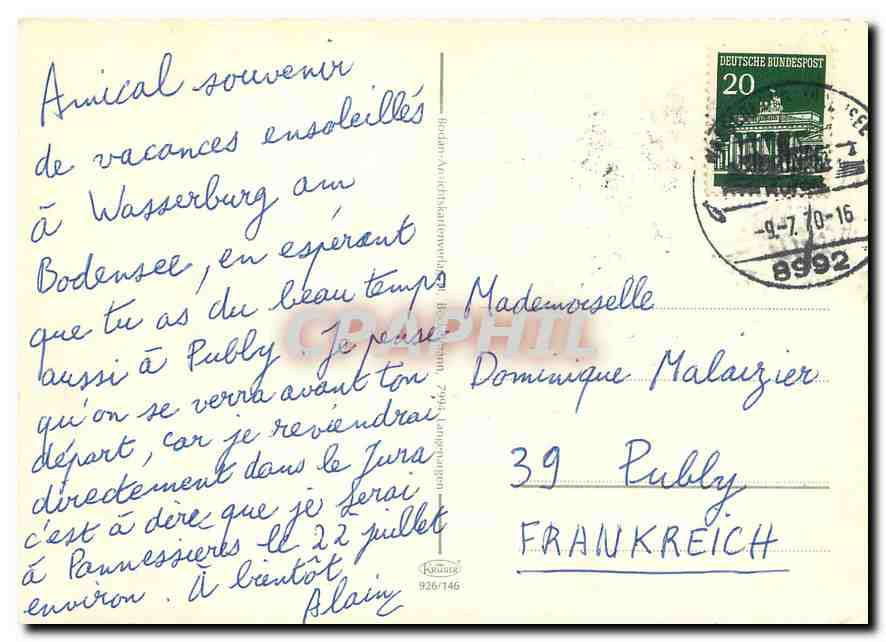 Amical souvenir
de vacances ensoleillés
à Wasserburg am
Bodensee, en espérant
que tu as du beau temps
aussi à Publy. Je pense
qu'on se verra avant ton
départ, car je reviendrai
directement dans le Jura
c'est à dire que je serai
à Pannessières le 22 juillet
environ. À bientôt
Alain
DEUTSCHE BUNDESPOST
20
-9.-7.70-16
8992
Mademoiselle
Dominique Malaizier
39 Publy
FRANKREICH
7994 Langenargen
KRÜGER
926/146
CPAPHIL